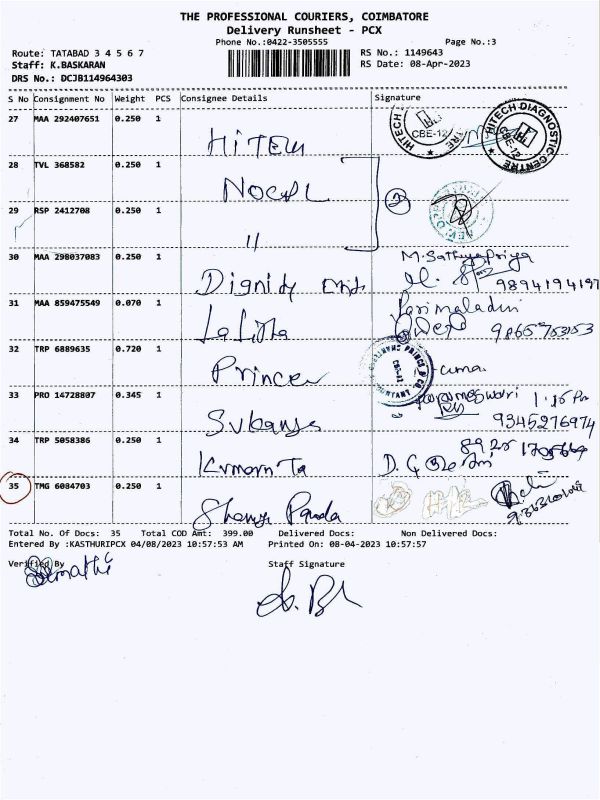 THE PROFESSIONAL COURIERS, COIMBATORE
Delivery Runsheet - PCX
Phone No.:0422-3505555
Page No.:3
Route: TATABAD 3 4 5 6 7
RS No.: 1149643
Staff: K.BASKARAN
RS Date: 08-Apr-2023
DRS No.: DCJB114964303
S No Consignment No Weight PCS Consignee Details Signature
27 MAA 292407651 0.250 1
HiTECH
HITECH DIAGNOSTIC CENTRE
CBE-12
28 TVL 368582 0.250 1
29 RSP 2412708 0.250 1
"
30 MAA 298037083 0.250 1
M. Sathyapriya
Dignity
9894194197
31 MAA 859475549 0.070 1
Lalitha
32 TRP 6889635 0.720 1
Prince
uma
33 PRO 14728807 0.345 1
Parameswari 1.15 Pm
Sukanya
9345276974
34 TRP 5058386 0.250 1
D. G
35 TMG 6084703 0.250 1
Total No. Of Docs: 35 Total COD Amt: 399.00 Delivered Docs: Non Delivered Docs:
Entered By :KASTHURIPCX 04/08/2023 10:57:53 AM Printed On: 08-04-2023 10:57:57
Verified By Staff Signature